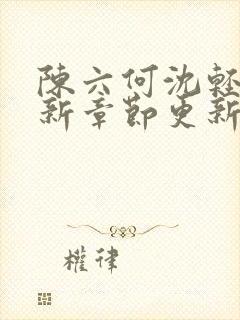 陳六何沈輕
新章節更新
權律